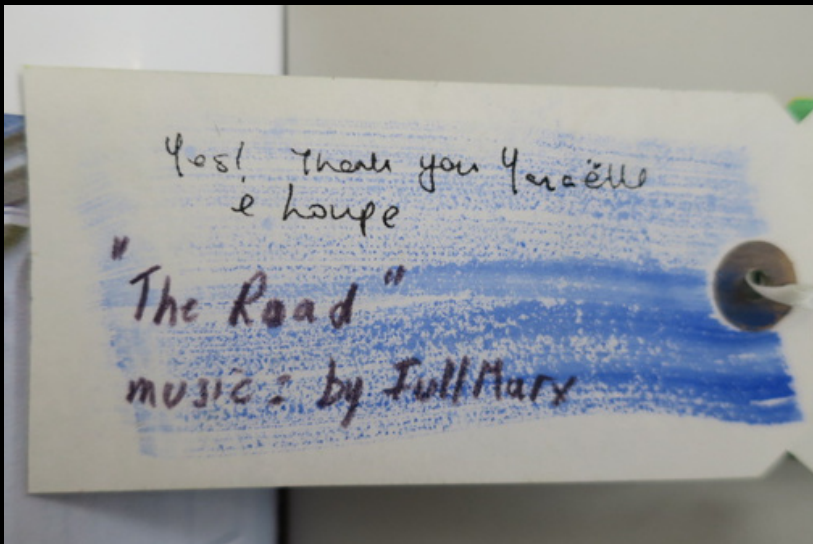 Yes! Thank you
e Loupe
"The Road"
music: by JullMarx